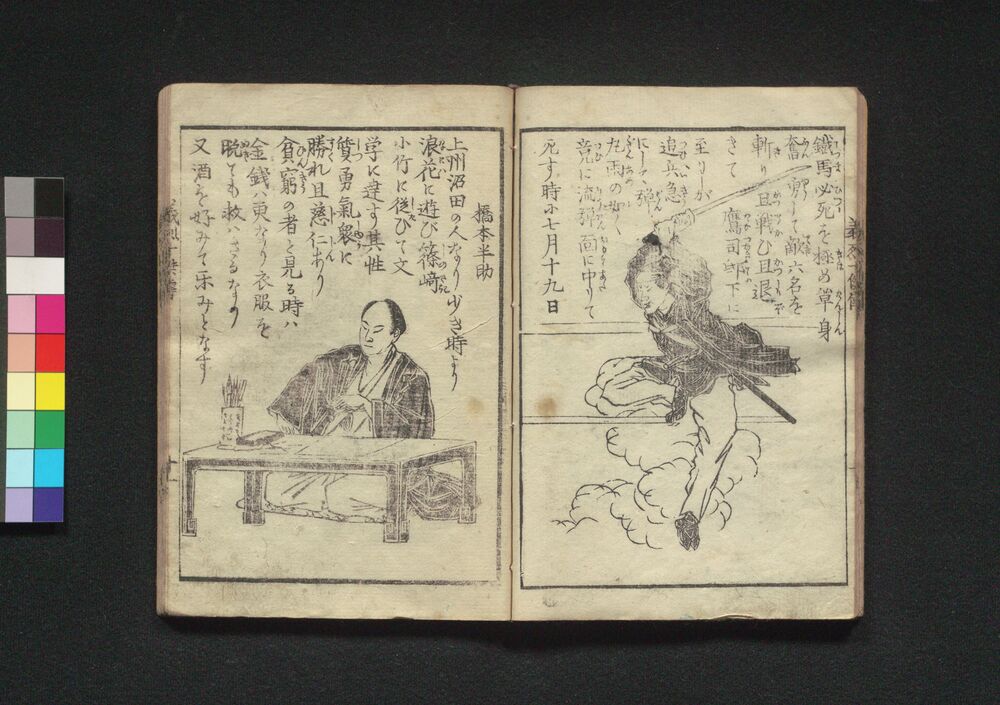 鐵馬必死を極め單身
奮躬して敵六名を
斬り且戰ひ且退
きて鷹司邸下に
至りしが
追兵急
にして弾
丸雨の如く
竟に流弾面に中りて
死す時に七月十九日
橋本半助
上州沼田の人なり少き時より
浪花に遊び篠崎
小竹に従ひて文
学に達す其性
質勇氣衆に
勝れ且慈仁あり
貧窮の者と見る時ハ
金銭ハ更なり衣服を
脱ても救ハさるなり
又酒を好みて楽みとなす